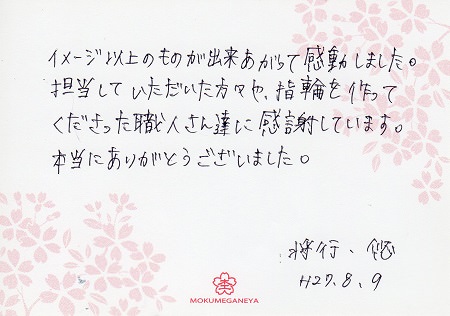 イメージ以上のものが出来あがって感動しました。
担当していただいた方々や、指輪を作って
くださった職人さん達に感謝しています。
本当にありがとうございました。
将行、悠
H27.8.9
MOKUMEGANEYA